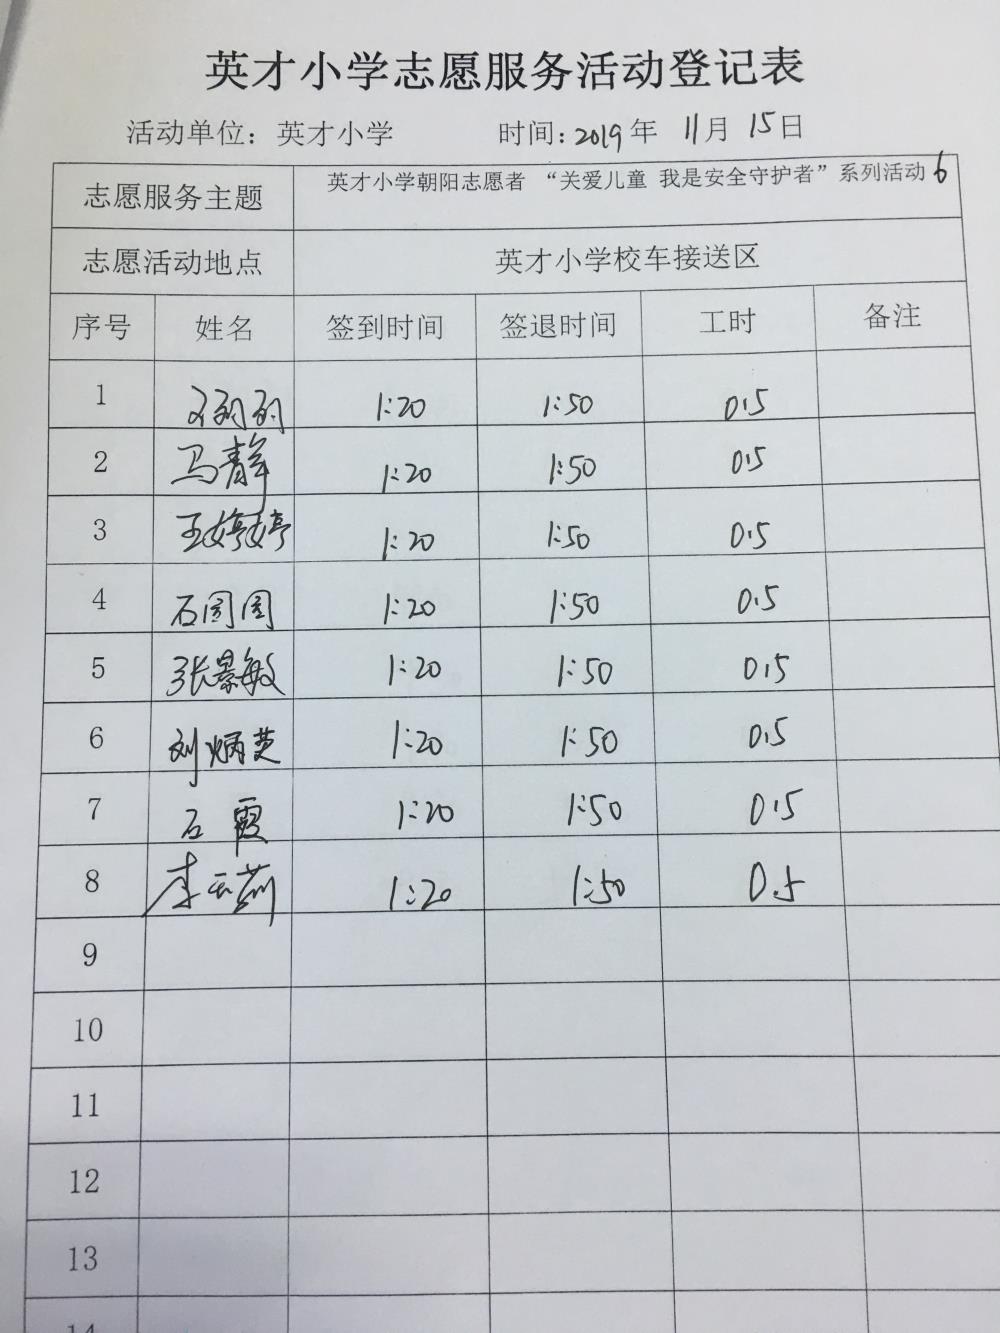 英才小学志愿服务活动登记表
活动单位：英才小学 时间：2019年 11月 15日
志愿服务主题 英才小学朝阳志愿者 “关爱儿童 我是安全守护者”系列活动6
志愿活动地点 英才小学校车接送区
序号 姓名 签到时间 签退时间 工时 备注
1 1:20 1:50 0.5
2 马静 1:20 1:50 0.5
3 王婷婷 1:20 1:50 0.5
4 石圆圆 1:20 1:50 0.5
5 张景敏 1:20 1:50 0.5
6 刘炳芝 1:20 1:50 0.5
7 石霞 1:20 1:50 0.5
8 李 1:20 1:50 0.5
9
10
11
12
13
14